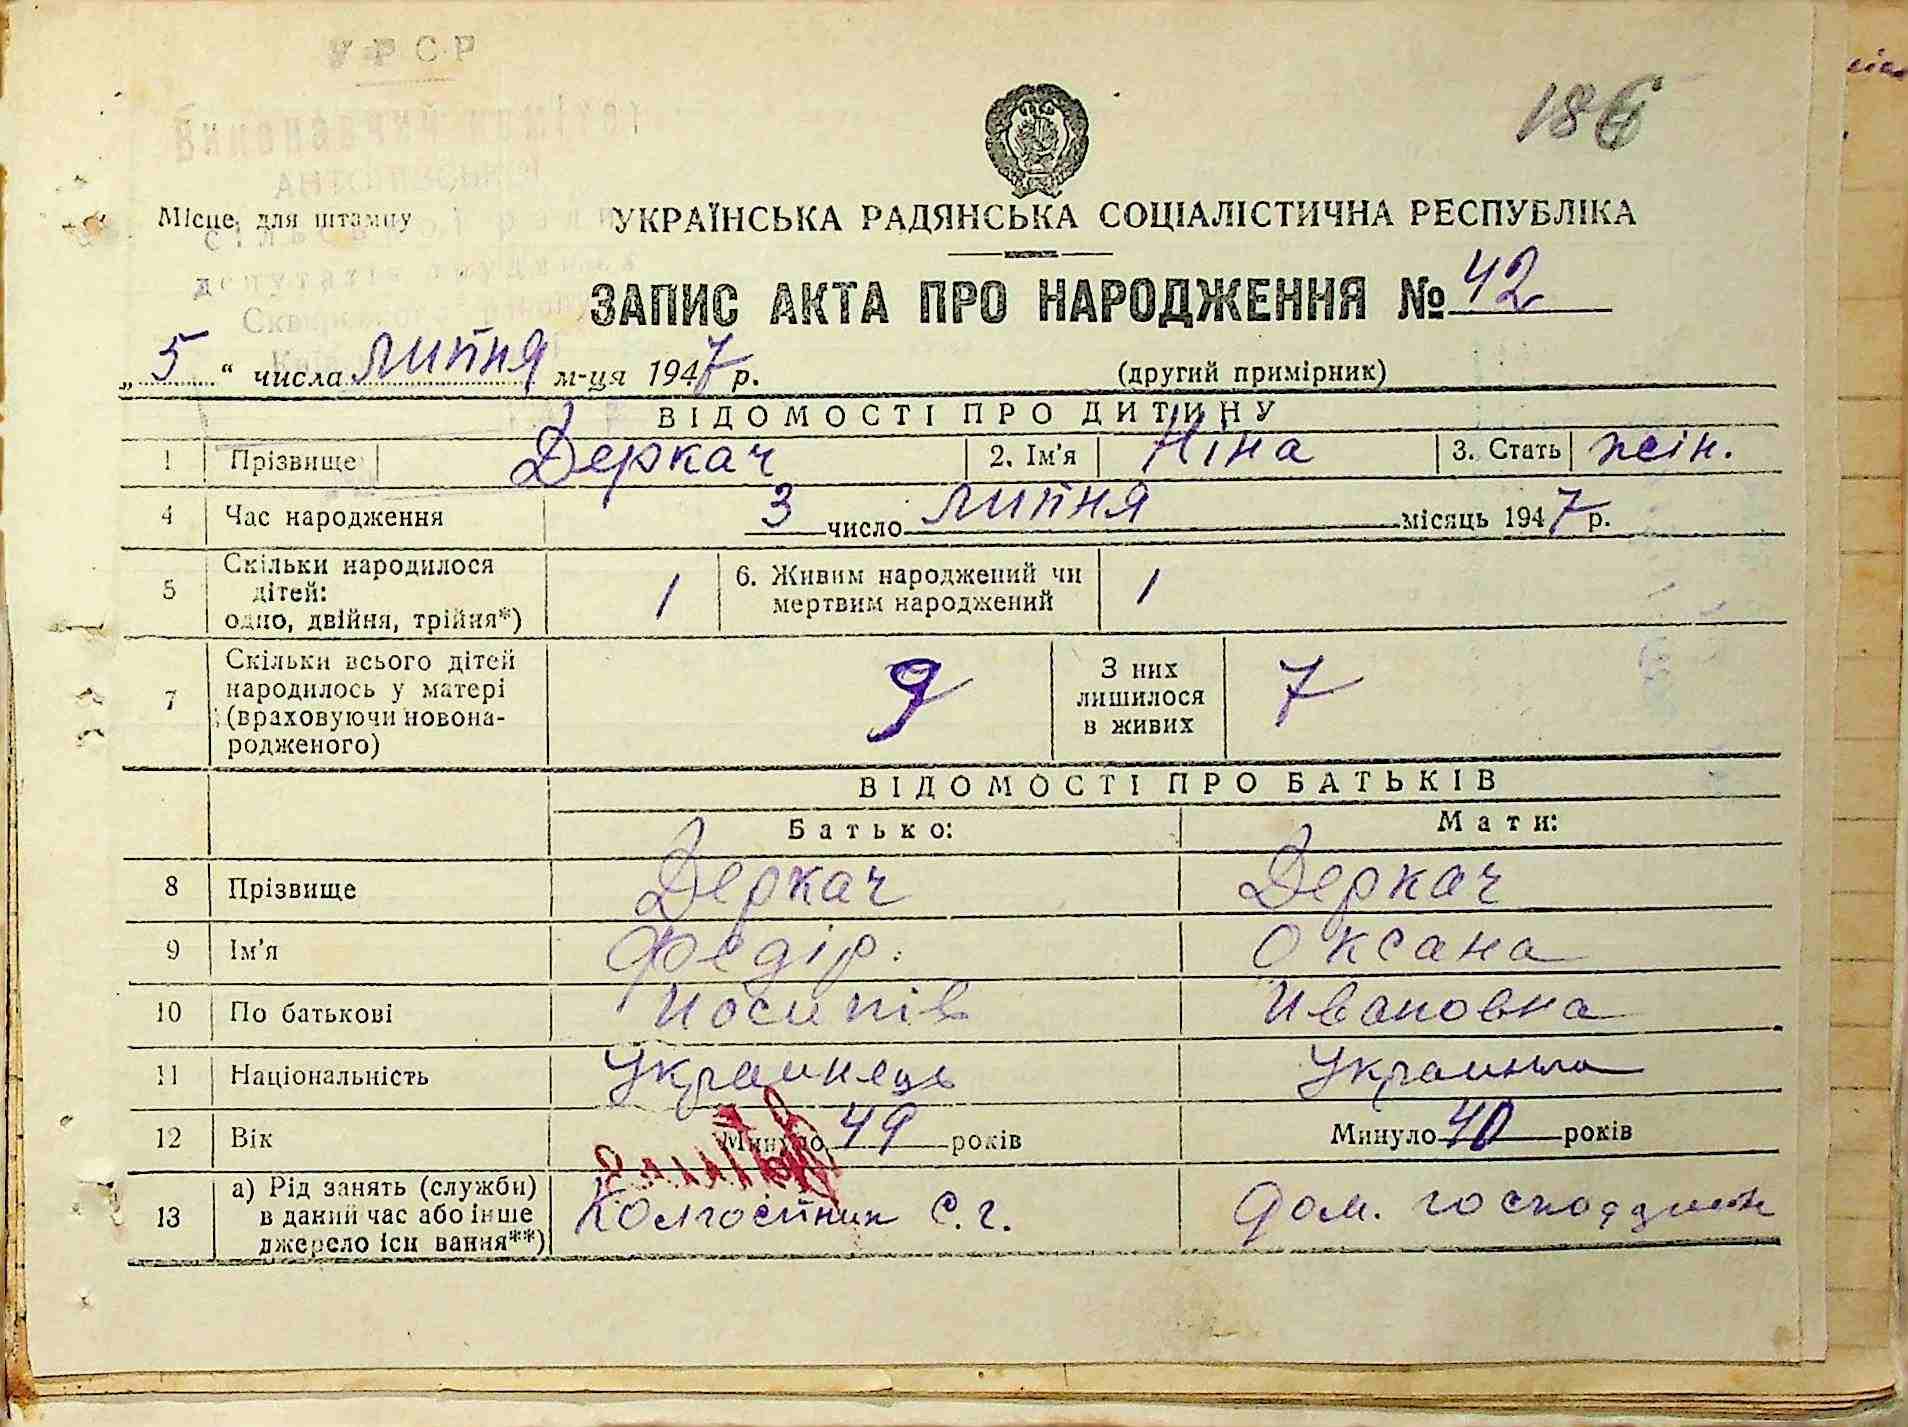 УРСР
Виконавчий комітет
АНТОНІВСЬКОЇ
186
Місце для штампу
УКРАЇНСЬКА РАДЯНСЬКА СОЦІАЛІСТИЧНА РЕСПУБЛІКА
сільської ради
депутатів трудящих
Сквирського району
ЗАПИС АКТА ПРО НАРОДЖЕННЯ № 42
„ 5 “ числа липня м-ця 1947 р. (другий примірник)
ВІДОМОСТІ ПРО ДИТИНУ
1 Прізвище Деркач 2. Ім'я Ніна 3. Стать жін.
4 Час народження 3 число липня місяць 1947 р.
5 Скільки народилося дітей: одно, двійня, трійня*) 1 6. Живим народжений чи мертвим народжений 1
7 Скільки всього дітей народилось у матері (враховуючи новонародженого) 9 З них лишилося в живих 7
ВІДОМОСТІ ПРО БАТЬКІВ
Батько: Мати:
8 Прізвище Деркач Деркач
9 Ім'я Федір. Оксана
10 По батькові Иосипів Ивановна
11 Національність Украинець Украинка
12 Вік Минуло 49 років Минуло 40 років
13 а) Рід занять (служби) в даний час або інше джерело існування**) Колгоспник С. г. Дом.